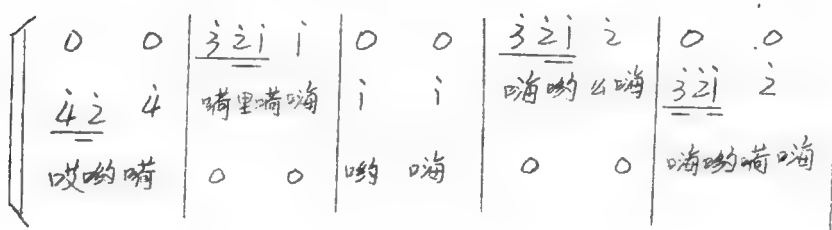 0 0 | 3̇ 2̇ 1̇ 1̇ | 0 0 | 3̇ 2̇ 1̇ 2̇ | 0 0
4̇ 2̇ 4̇ | 嗬里嗬嗨 | 1̇ 1̇ | 嗨哟么嗨 | 3̇ 2̇ 1̇ 2̇
哎哟嗬 | 0 0 | 哟 嗨 | 0 0 | 嗨哟嗬嗨